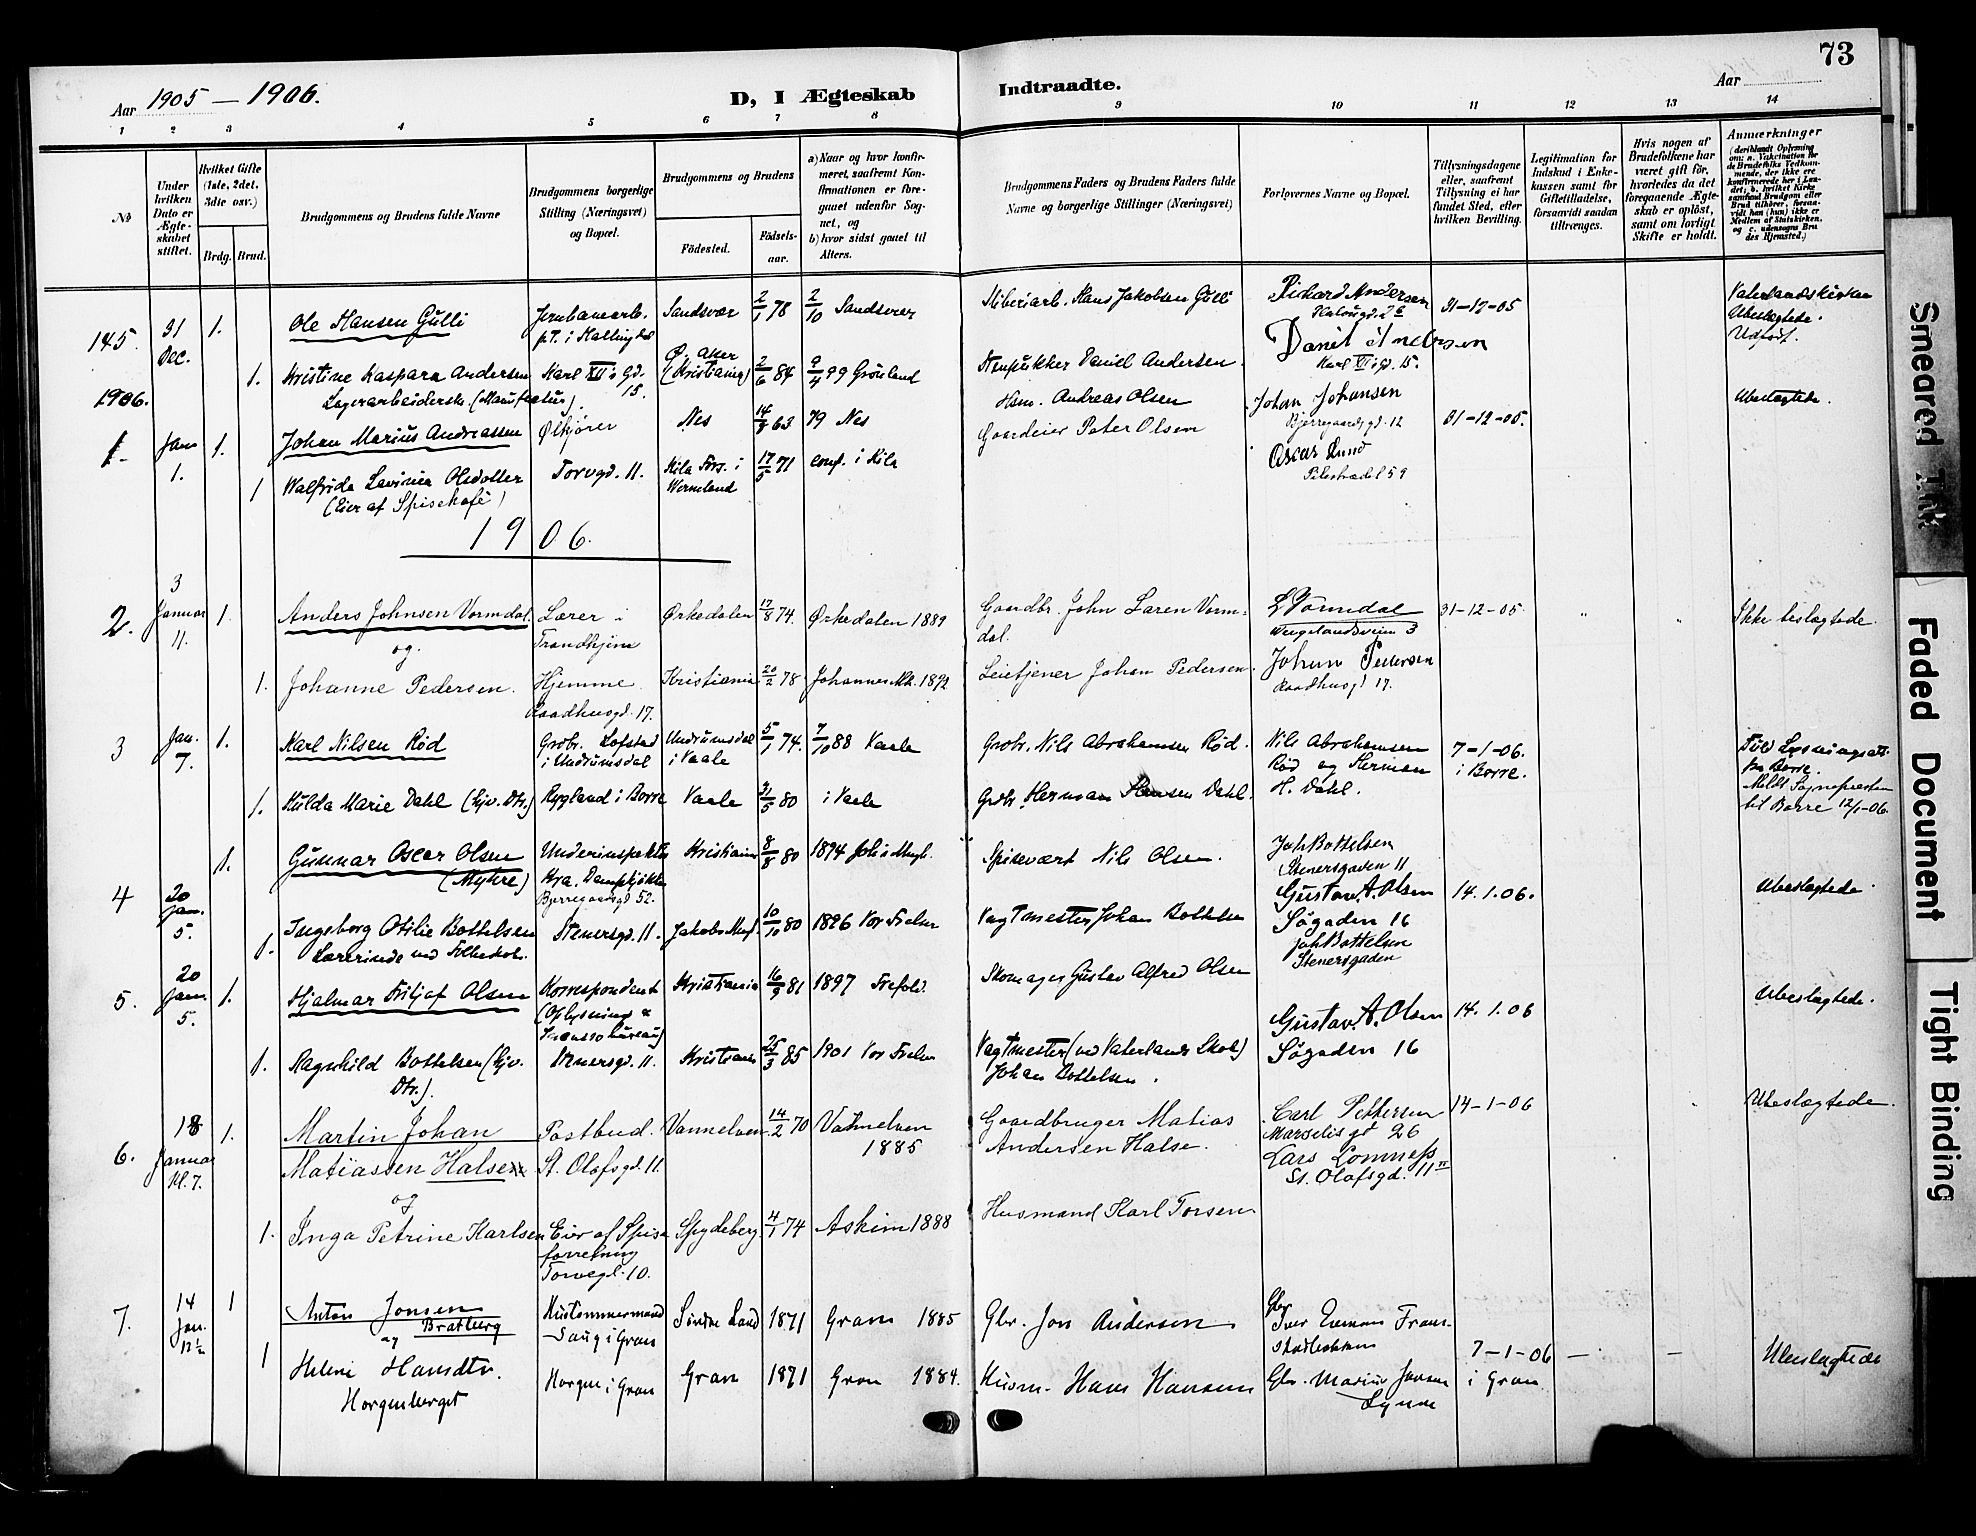 73
Aar 1905 – 1906.
D, I Ægteskab Indtraadte.
Aar
1 2 3 4 5 6 7 8 9 10 11 12 13 14
No
Under hvilken Dato er Ægteskabet stiftet.
Hvilket Gifte (1ste, 2det, 3die osv.)
Brdg. Brud.
Brudgommens og Brudens fulde Navne
Brudgommens borgerlige Stilling (Næringsvei) og Bopæl.
Brudgommens og Brudens
Fødested. Fødselsaar.
a) Naar og hvor konfirmeret, saafremt Konfirmationen er foregaaet udenfor Sognet, og
b) hvor sidst gaaet til Alters.
Brudgommens Faders og Brudens Faders fulde Navne og borgerlige Stillinger (Næringsvei)
Forlovernes Navne og Bopæl.
Tillysningsdagene eller, saafremt Tillysning ei har fundet Sted, efter hvilken Bevilling.
Legitimation for Indskud i Enkekassen samt for Giftetilladelse, forsaavidt saadan tiltrænges.
Hvis nogen af Brudefolkene har været gift før, hvorledes da det foregaaende Ægteskab er opløst, samt om lovligt Skifte er holdt.
Anmærkninger
145. 31 Dec. 1. Ole Hansen Gulli Jernbanearb. p.T. i Hallingdal Sandsvær 2/1 78 2/10 Sandsvær Hans Jakobsen Gulli Richard Andersen 31-12-05 Vaterlandskirken Ubeslægtede.
1. Kristine Kaspara Andersen Karl XII's Gd. 15. Ø. Aker (Kristiania) 2/6 84 9/4 99 Grønland Daniel Andersen Daniel Andersen Karl XII's gd. 15.
Lagerarbeiderske
1906.
1. Jan 1. 1. Johan Marius Andreassen Ølkjører Nes 63 79 Nes Hsm. Andreas Olsen Johan Johansen Bjerregaardsgd. 12 31-12-05. Ubeslægtede.
1 Walfrida Lavinia Olsdotter Torvgd. 11. Kila Fors. i Wermeland 17/5 71 conf. i Kila Gaardeier Peter Olsen Oscar Lund Pilestrædet 59
(Eier af Spisekafé)
1906.
2. 3 Januar 11. 1. Anders Johnsen Vormdal Lærer i Trondhjem Ørkedalen 17/8 74. Ørkedalen 1889 Gaardbr. John Larsen Vormdal. L Vormdal Wergelandsveien 3 31-12-05. " " Ikke beslægtede.
og
1. Johanne Pedersen. Hjemme Raadhusgd. 17. Kristiania 20/2 78 Johannes Kk. 1892 Leietjener Johan Pedersen. Johan Pedersen Raadhusgd 17.
3 Jan. 7. 1. Karl Nilsen Rød Grdbr. Lofstad i Undrumsdal Undrumsdal i Vaale 5/1 74. 7/10 88 Vaale Grdbr. Nils Abrahamsen Rød. Nils Abrahamsen Rød og Herman H. Dahl. 7-1-06. i Borre.
1. Hulda Marie Dahl (Hjv. Dtr.) Rygland i Borre Vaale 31/5 80 i Vaale Grdbr. Herman Hansen Dahl. Meldt Sognepresten til Borre 12/1-06.
4 20 Jan. 5. 1. Gunnar Oscar Olsen (Myhre) Underinspektør Kra. Dampkjøkken Bjerregaardsgd 52. Kristiania 8/8 80 1894 Spisevært Nils Olsen. Joh Bottelsen Stenersgaden 11 14.1.06. Ubeslægtede
1. Ingeborg Otilie Bottelsen Stenersgd. 11. Jakobs 10/10 80 1896 Vor Frelser Vagtmester Johan Bottelsen Gustav. A. Olsen Søgaden 16
Lærerinde ved Folkeskol.
5. 20 Jan. 5. 1. Hjalmar Fritjof Olsen Korrespondent Kristiania 16/9 81 1897 Trefold. Skomager Gustav Alfred Olsen Joh Bottelsen Stenersgaden 14.1.06 Ubeslægtede.
1. Ragnhild Bottelsen (Hjv. Dtr.). Stenersgd. 11. Kristiania 25/3 85 1901 Vor Frelser Vagtmester (ved Vaterlands Skole) Johan Bottelsen. Gustav. A. Olsen Søgaden 16
6. 18 Januar kl. 7. 1. Martin Johan Matiassen Halse Postbud. St. Olafsgd. 11. Vannelven 14/2 70 Vannelven 1885 Gaardbruger Matias Andersen Halse. Carl Pettersen Marselis gt 26 14-1-06 Ubeslægtede.
Lars Lomness St. Olafsgd. 11
og
1. Inga Petrine Karlsen Eier af Spiseforretning Torvegd. 10. Spydeberg 4/1 74 Askim 1888 Husmand Karl Torsen
7. 14 Jan. 12½ 1 Anton Jonsen Bratberg Hustømmermand Saug i Gran Søndre Land 1871 Gran 1885 Gbr. Jon Andersen Gbr Iver 7-1-06 i Gran — — Ubeslægtede
og
1 Helene Hansdtr. Horgenberget Horgen i Gran Gran 1871 Gran 1884. Husm. Hans Hansen Gbr. Martin Jensen Lynne
Smeared Ink
Faded Document
Tight Binding